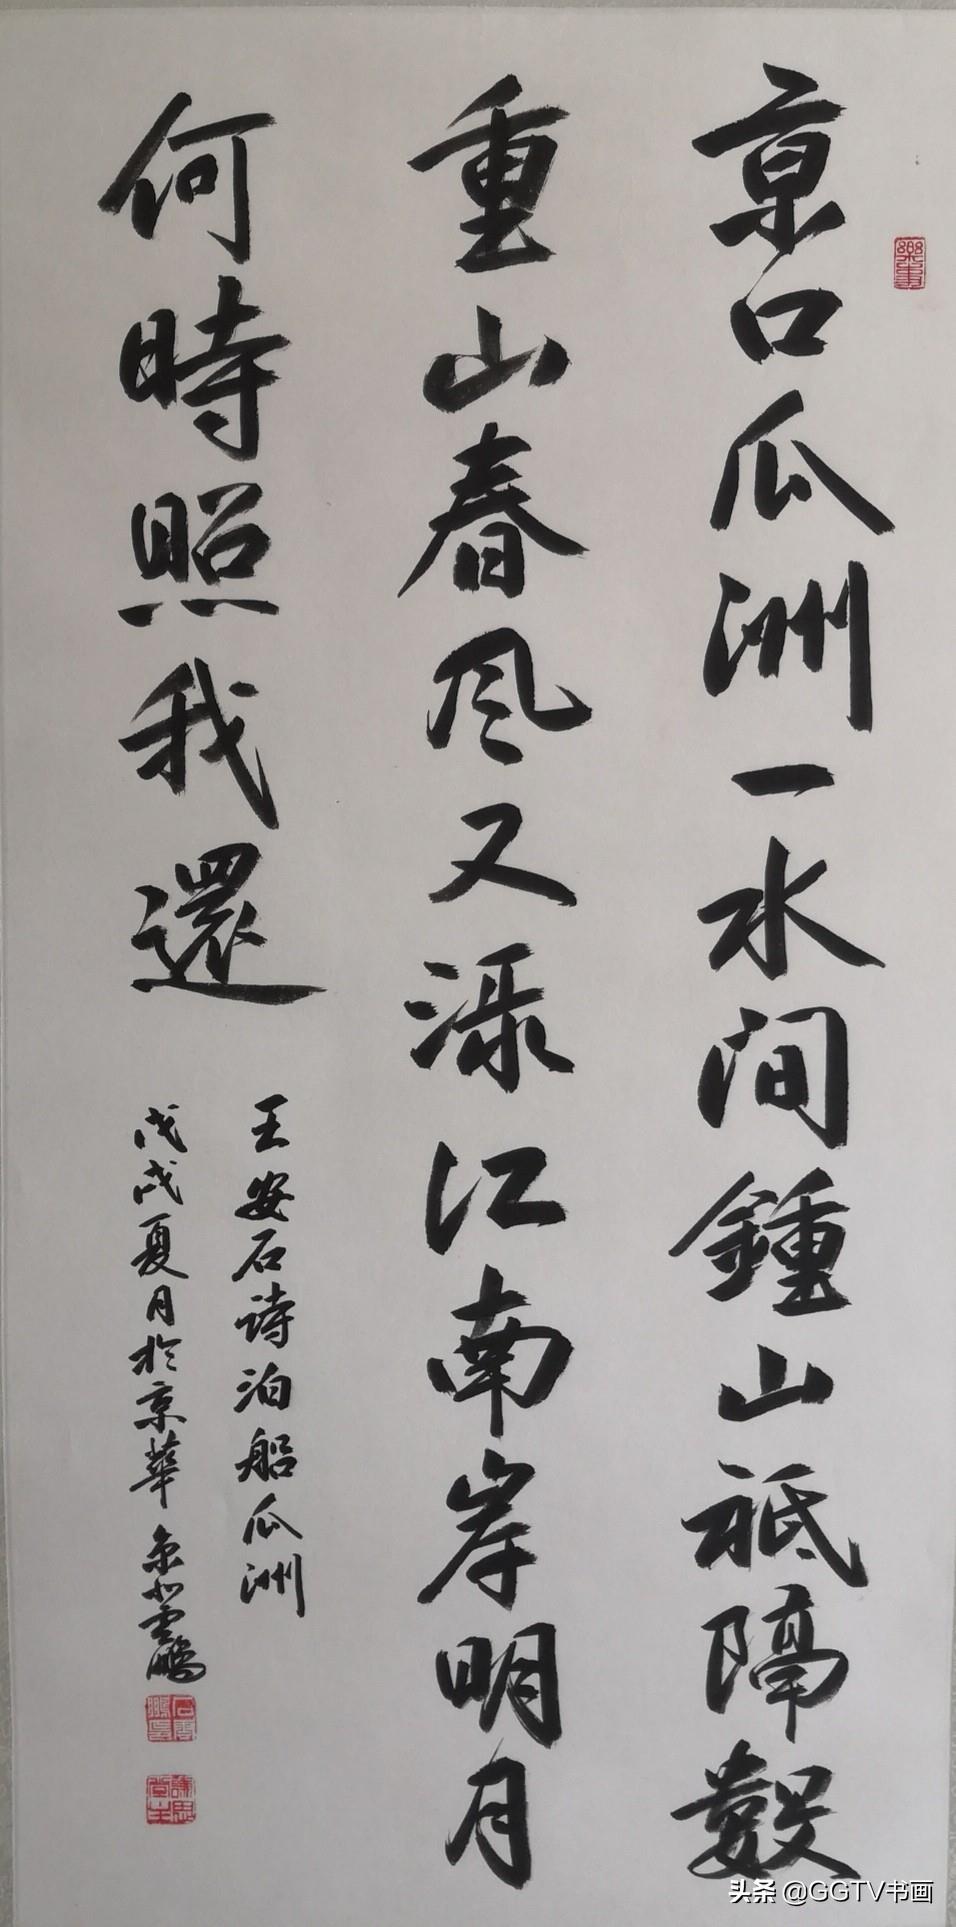 京口瓜洲一水间鍾山祗隔數
重山春风又渌江南岸明月
何時照我還
王安石诗泊船瓜洲
戊戌夏月於京華
頭条 @GGTV书画